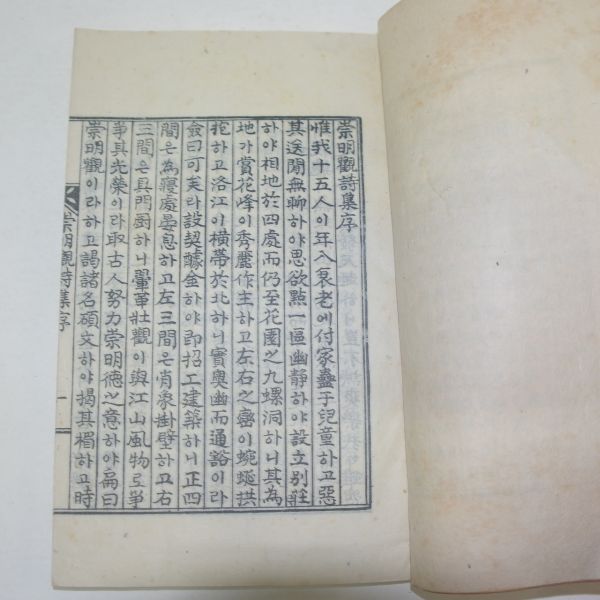 崇明觀詩集序
惟我十五人이年入衰老에付家蠱于兒童하고惡
其送閒無聊하야思欲點一區幽靜하야設立別莊
하야相地於四處而仍至花園之九螺洞하니其爲
地가賞花峰이秀麗作主하고左右之巒이蜿蜒拱
抱하고洛江이橫帶於北하니實奧幽而通豁이라
僉曰可矣라設契醵金하야卽招工建築하니正四
間은爲寢處晏息하고左三間은肖象掛壁하고右
三間은具門厨하니翬革壯觀이與江山風物로爭
爭其光榮이라取古人努力崇明德之意하야扁曰
崇明觀이라하고謁諸名碩文하야揭其楣하고時
崇明觀詩集序
一